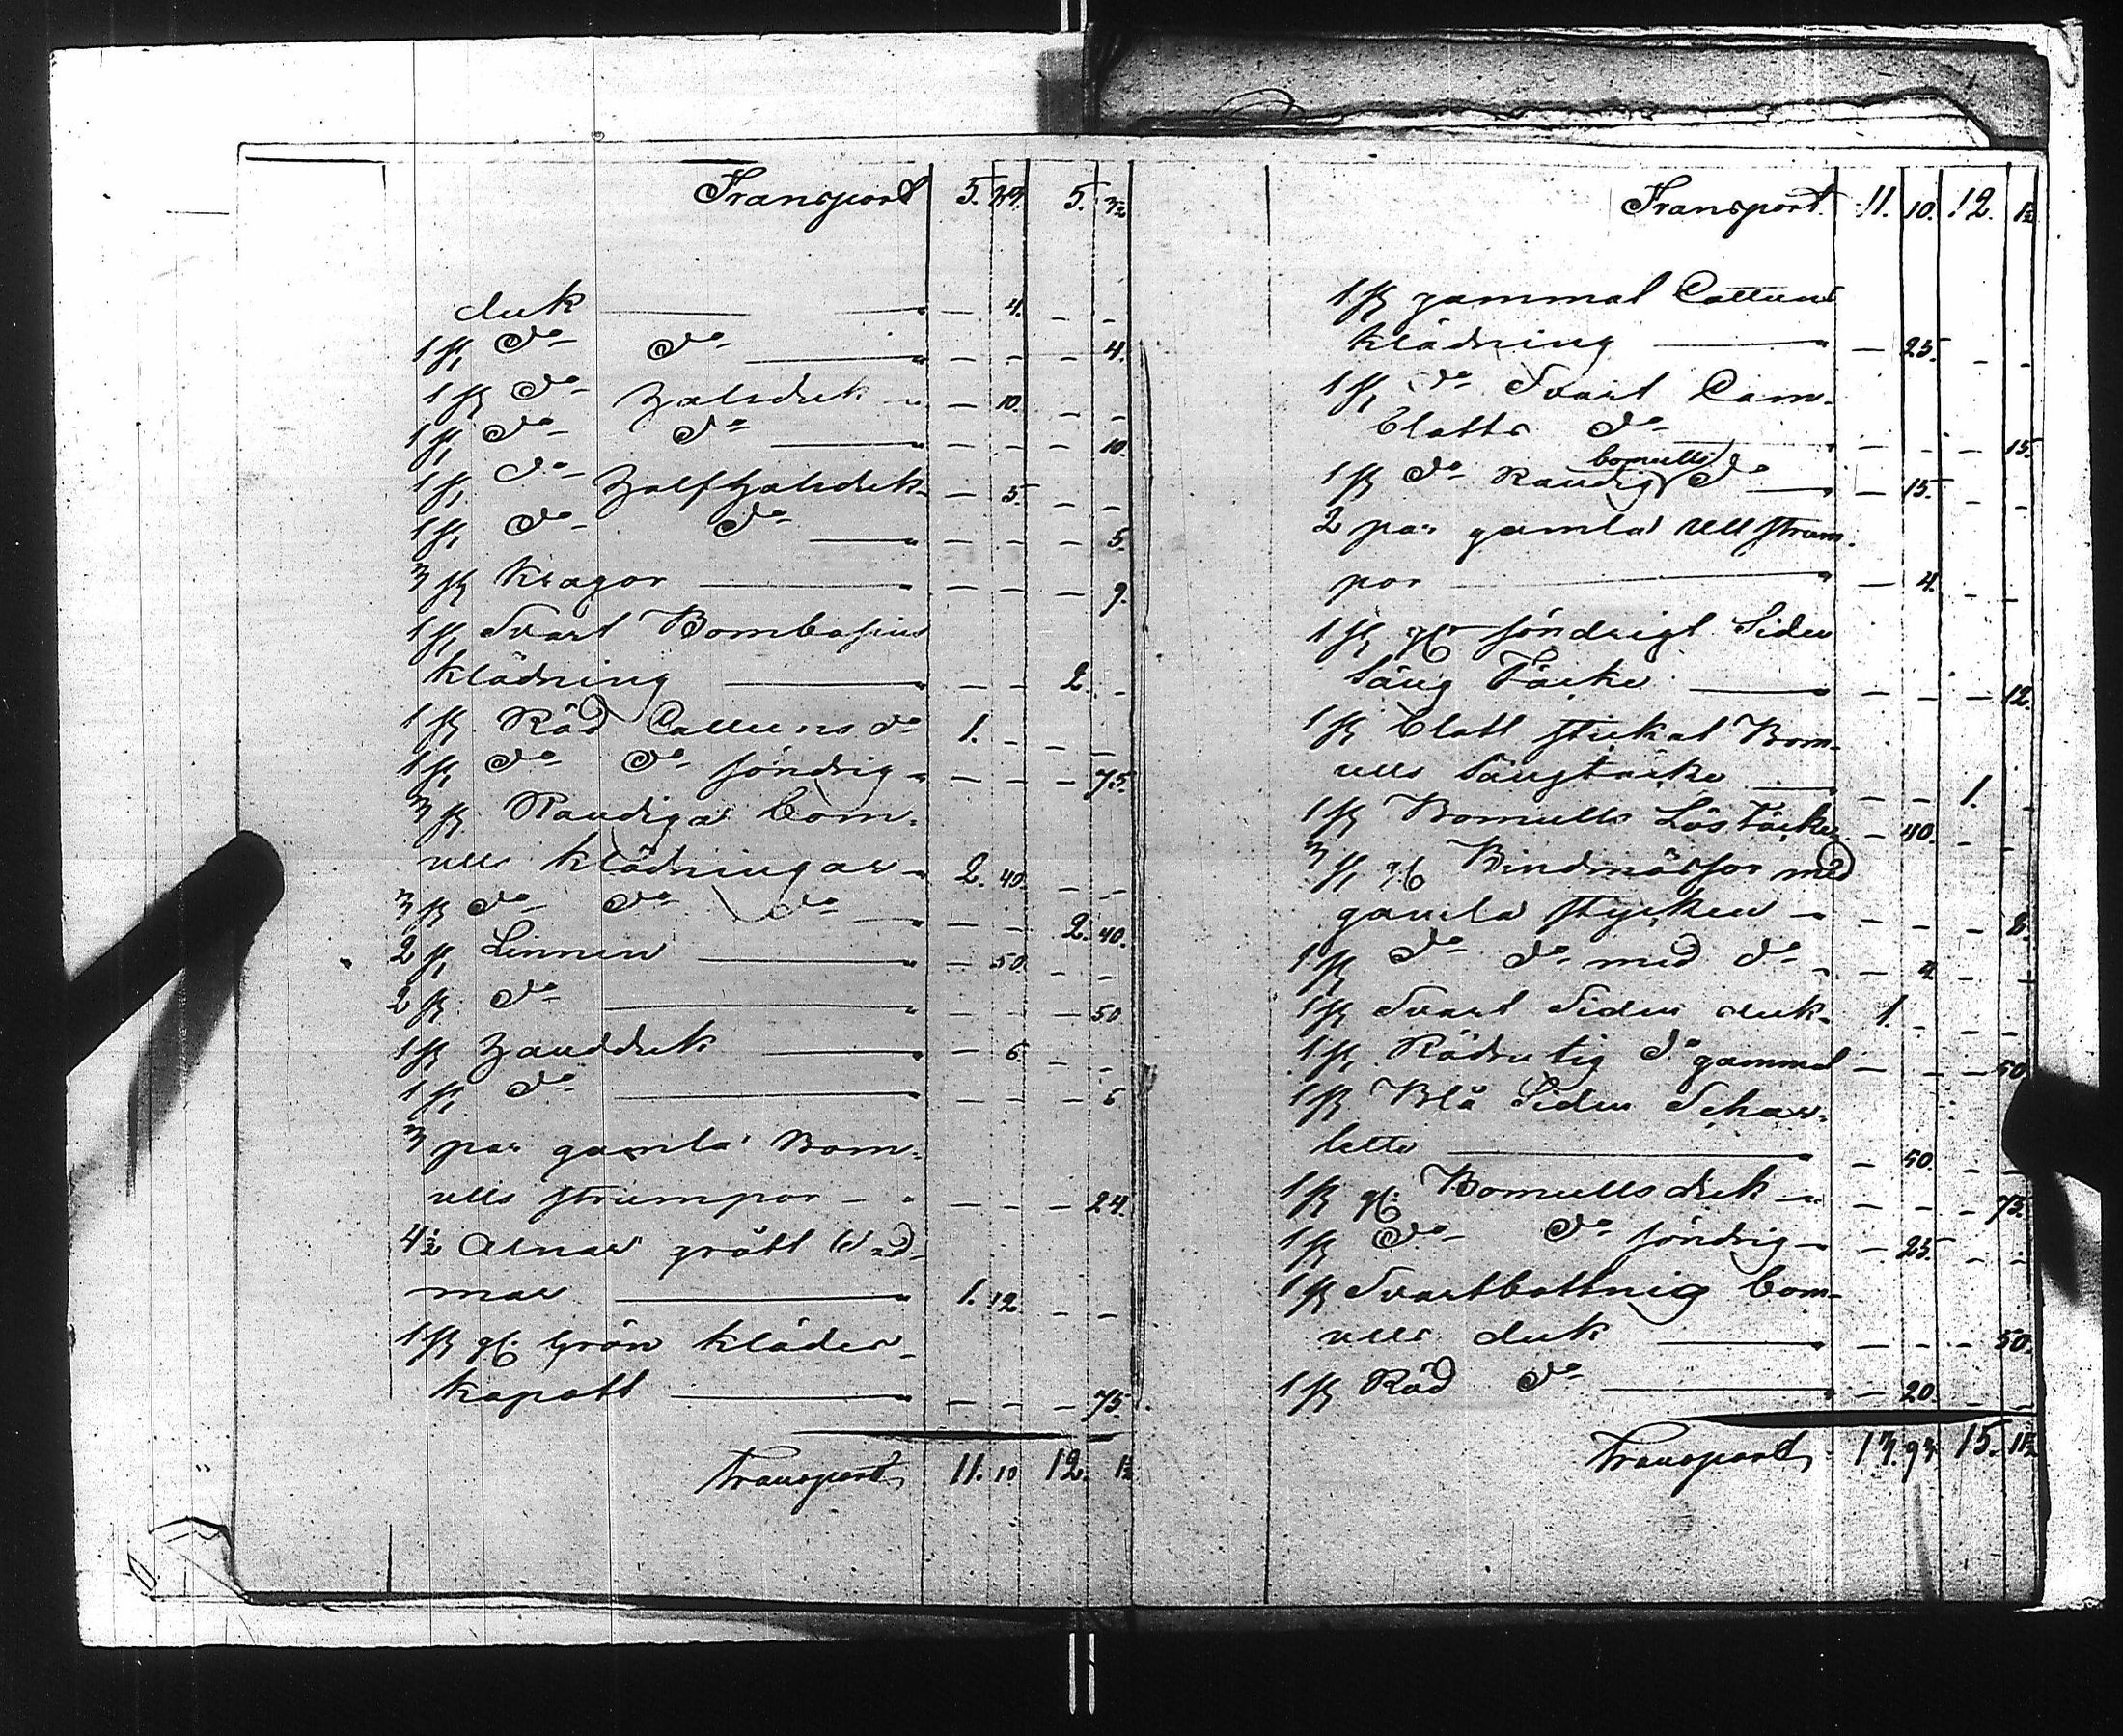 Transport 5. 39. 5. 3½
duk — 4. — —
1 st do do — — — 4.
1 st do Halsduk — 10. — —
1 st do do — — — 10.
1 st do Halfhalsduk — 5. — —
1 st do do — — — 5.
3 st Kragor — — — 9.
1 st Svart Bombasins
klädning — — 2. —
1 st Röd Cattuns do 1. — — —
1 st do do söndrig — — — 75.
3 st Randiga bom-
ulls klädningar 2. 40. — —
3 st do do do — — 2. 40.
2 st Linnen — 50. — —
2 st do — — — 50.
1 st Handduk — 6. — —
1 st do — — — 6.
3 par gamla Bom-
ulls strumpor — — — 24.
4½ Alnar grått Wad-
mar 1. 12. — —
1 st gl. Grön kläder
kapott — — — 75.
Transport 11. 10 12. 1½
Transport 11. 10. 12. 1½
1 st gammal Cattuns
klädning — 25. — —
1 st do Svart Cam-
blotts do — — — 15.
1 st do Randig bomulls do — 15. — —
2 par gamla Ull strum-
por — 4. — —
1 st gl söndrigt Siden
Säng Täcke — — — 12.
1 st Blått stickat Bom-
ulls Sängtäcke — — 1. —
1 st Bomulls Löstäcke — 40. — —
3 st gl Bindmössor med
gamla stycken — — — 8.
1 st do do med do — 4. — —
1 st Svart Siden duk 1. — — —
1 st Rödrutig do gammal — — — 50.
1 st Blå Siden Schar-
lette — 50. — —
1 st gl. Bomullsduk — — — 75.
1 st do do söndrig — 25. — —
1 st Svartbottnig bom-
ulls duk — — — 50.
1 st Röd do — 20. — —
Transport 13. 93. 15. 11½